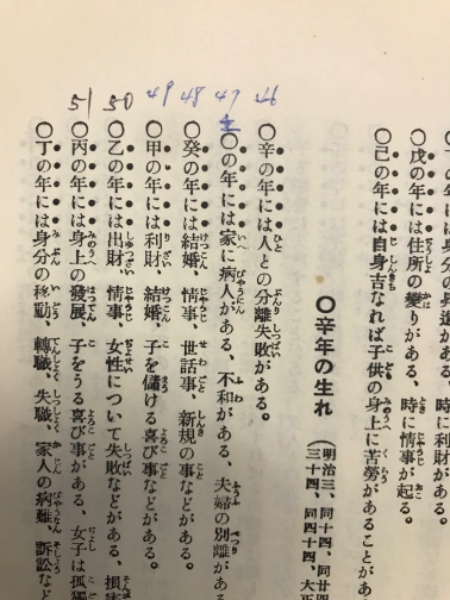 時に利財がある。
〇戊の年には住所の變りがある、時に情事が起る。
〇己の年には自身吉なれば子供の身上に苦勞があることがあ
〇辛年の生れ
(明治三、同十四、同廿四
三十四、同四十四、大正
46
〇辛の年には人との分離失敗がある。
47
壬
〇の年には家に病人がある、不和がある、夫婦の別離があ
48
〇癸の年には結婚、情事、世話事、新規の事などがある。
49
〇甲の年には利財、結婚、子を儲ける喜び事などがある。
50
〇乙の年には出財、情事、女性について失敗などがある、損
51
〇丙の年には身上の發展、子をうる喜び事がある、女子は孤獨
〇丁の年には身分の移動、轉職、失職、家人の病難、訴訟など